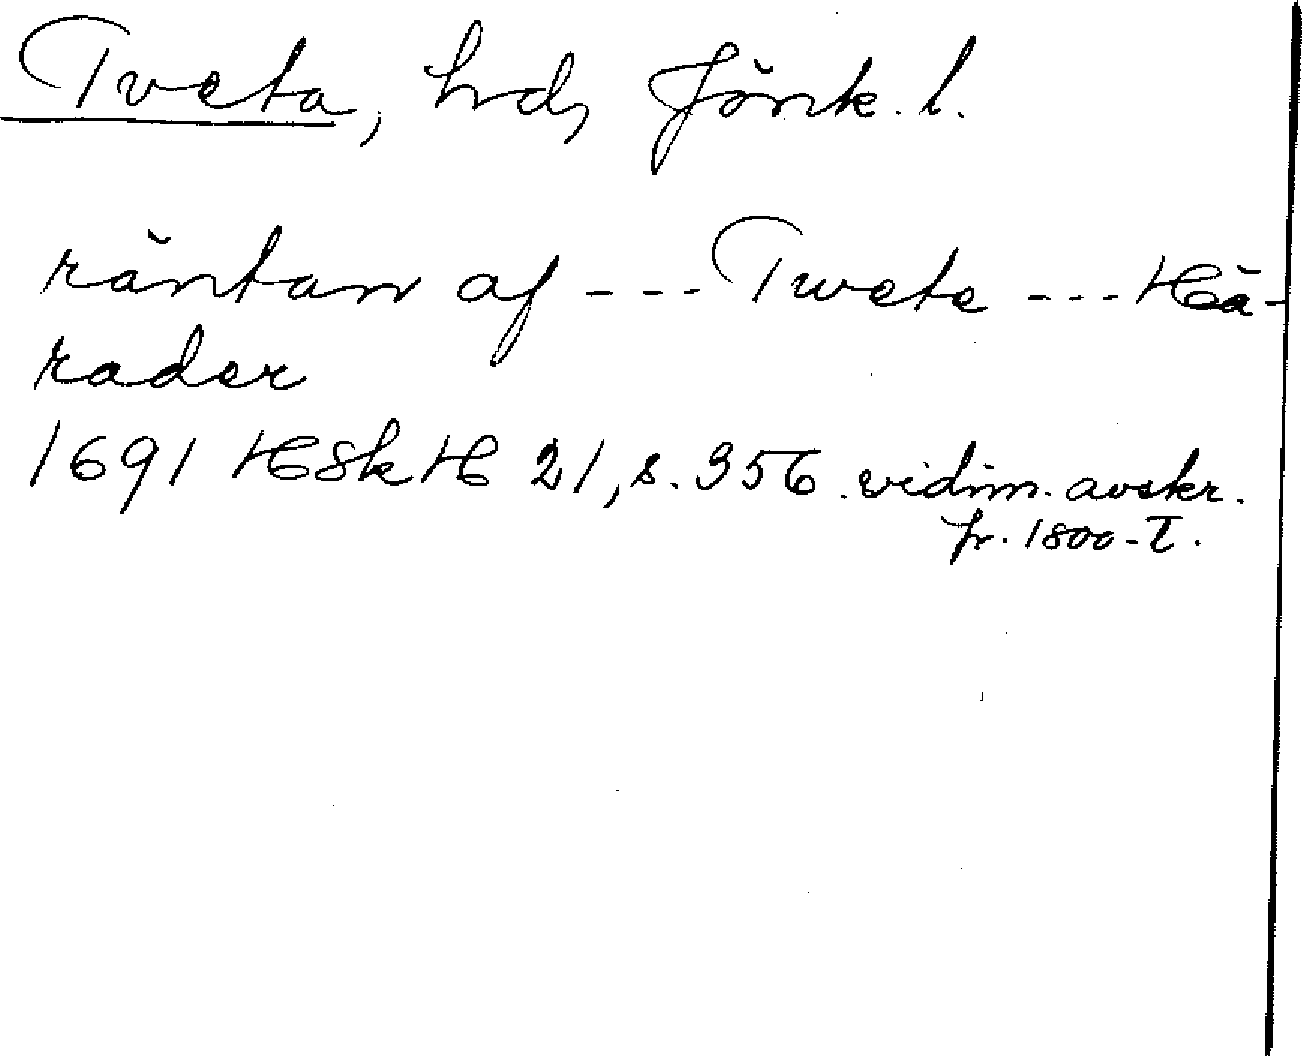 Tveta, hd, Jönk. l.
räntan af --- Twete --- Hä-
rader
1691 HSkH 21, s. 356. vidim. avskr.
fr. 1800-T.